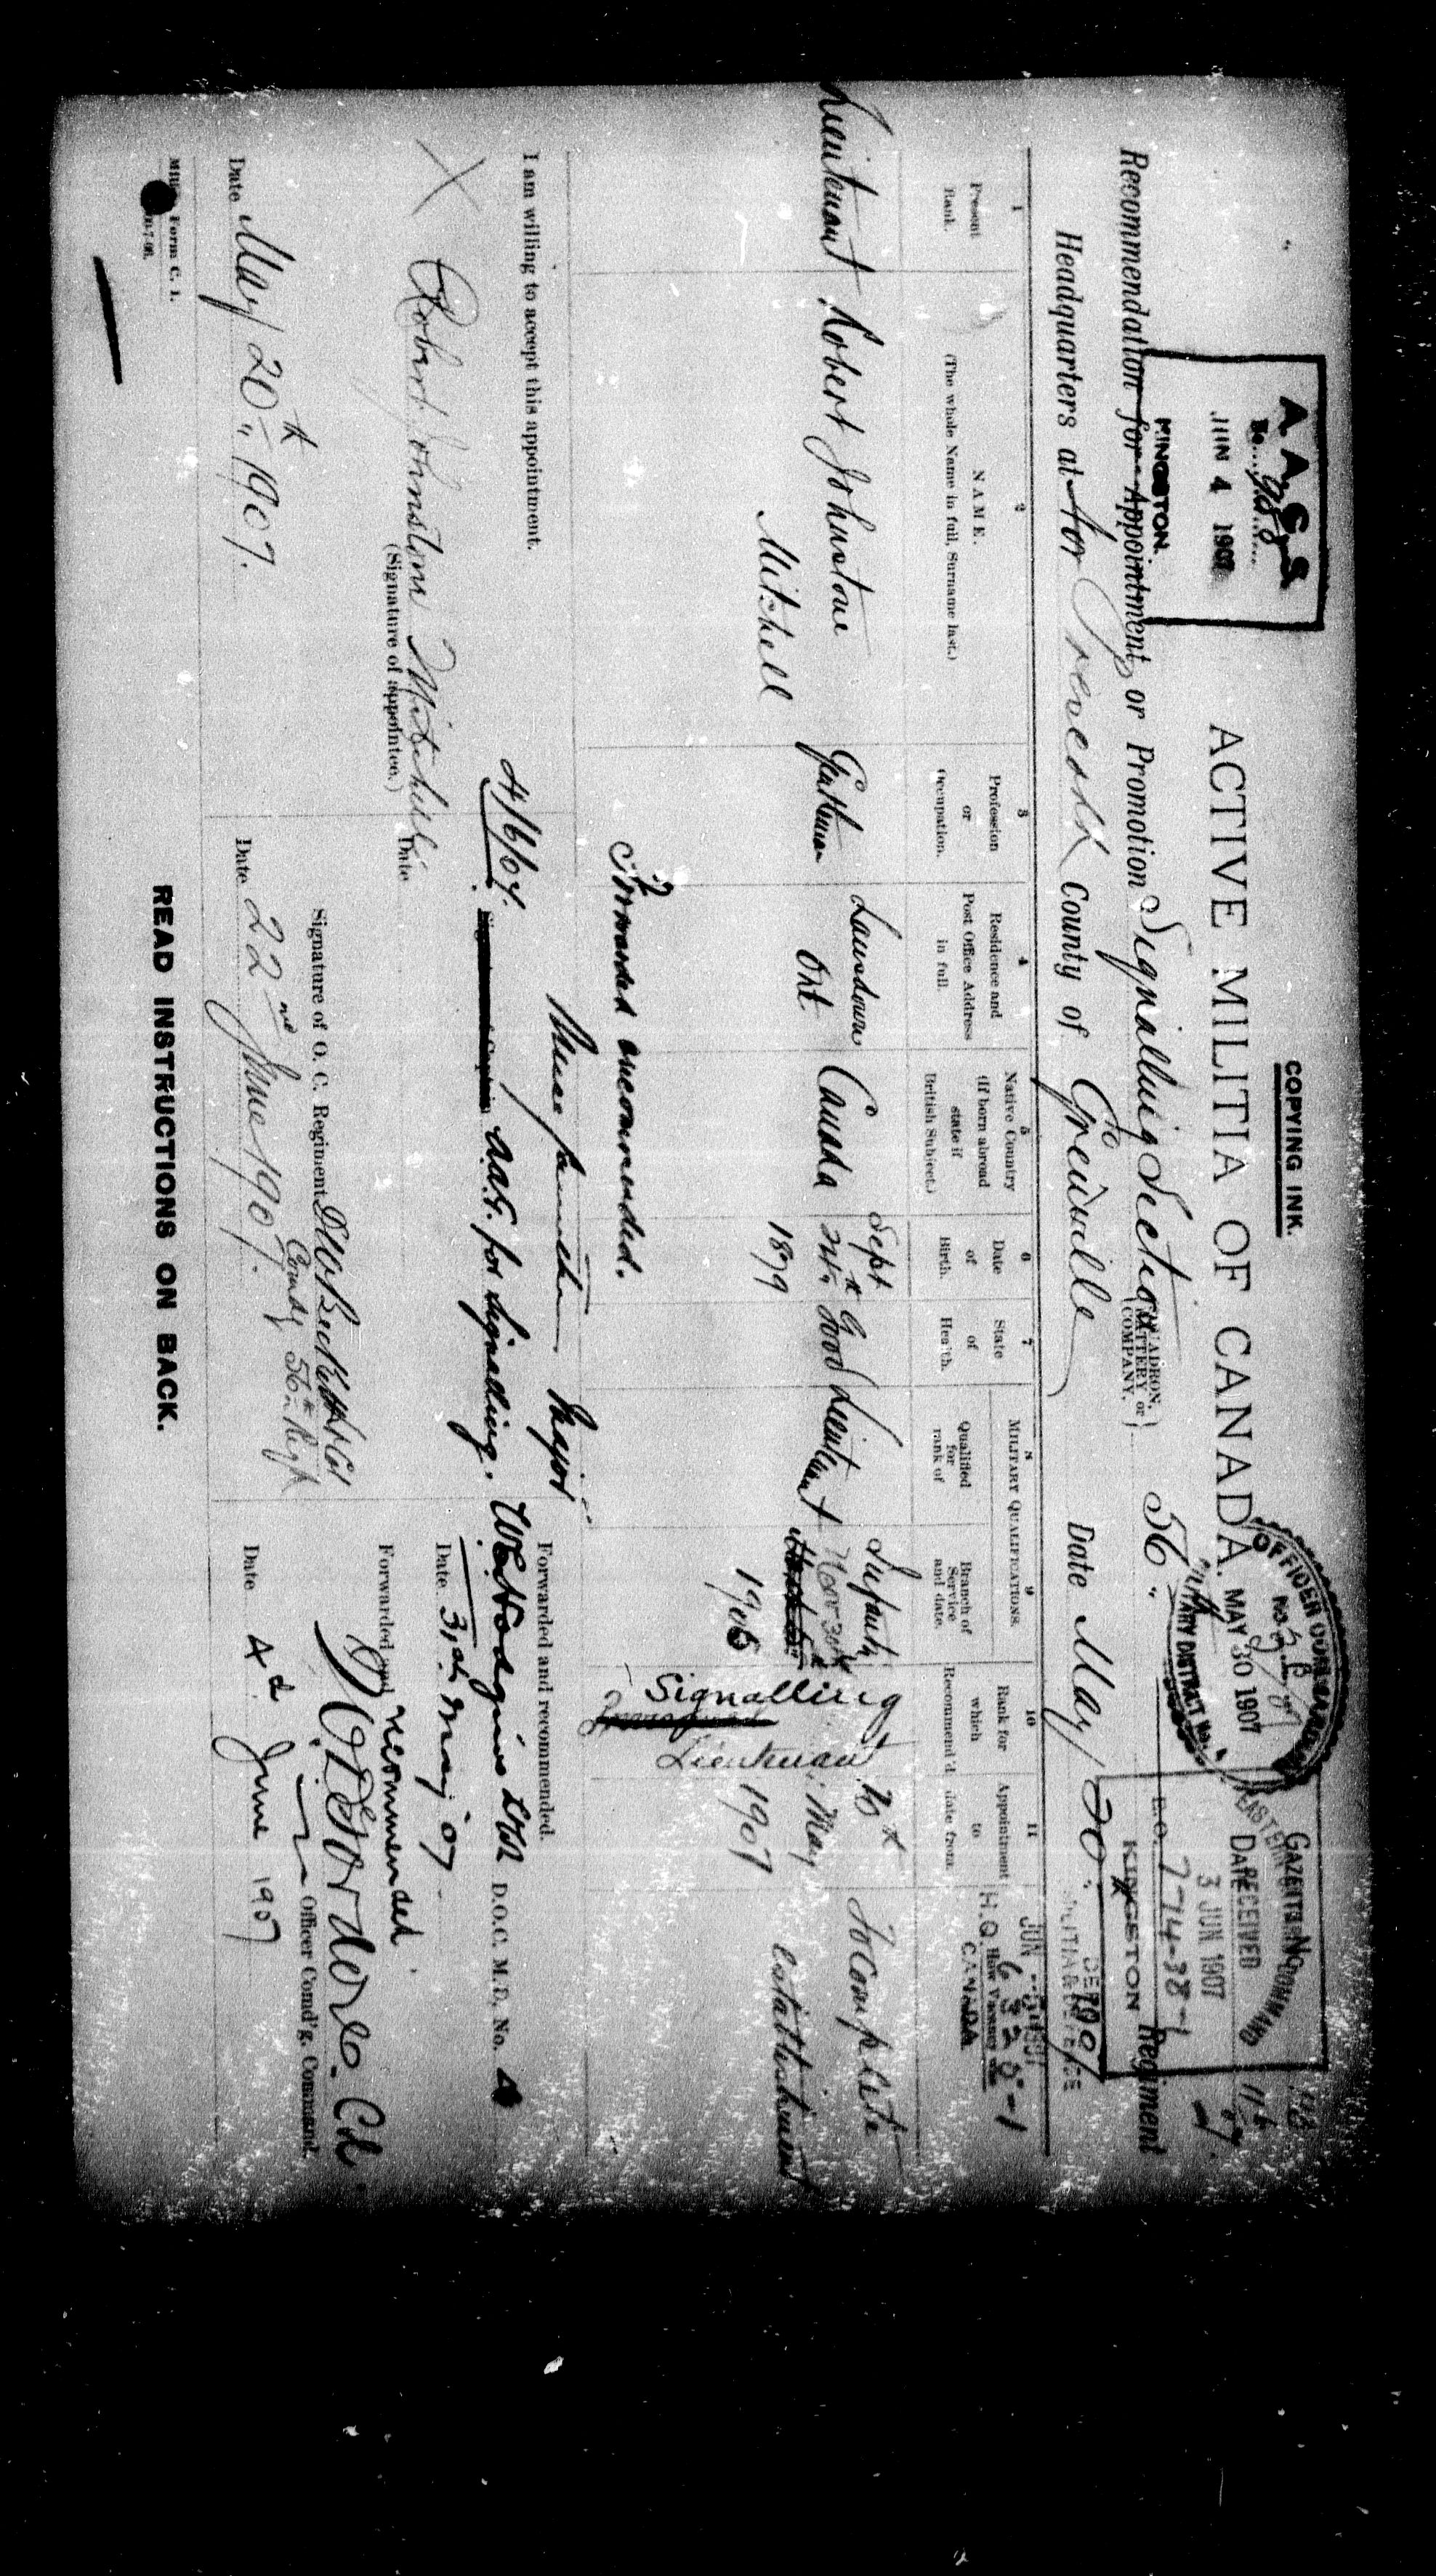 COPYING INK.
A. A. G. S
No. 988
JUN 4 1907
KINGSTON.
ACTIVE MILITIA OF CANADA.
OFFICER COMMANDING
No.
MAY 30 1907
MILITARY DISTRICT No.
GAZETTE No
DATE
EASTERN COMMAND
RECEIVED
3 JUN 1907
E.O. 774-38-1
KINGSTON
Recommendation for Appointment, or Promotion Signalling Section (SQUADRON, BATTERY or COMPANY.) 56. Regiment
Headquarters at for Prescott County of Grenville Date May 20
MILITIA & DEFENCE
H.Q. 6328-1
CANADA
1 Present Rank.
2 NAME. (The whole Name in full, Surname last.)
3 Profession or Occupation.
4 Residence and Post Office Address in full.
5 Native Country (If born abroad state if British Subject.)
6 Date of Birth.
7 State of Health.
MILITARY QUALIFICATIONS.
8 Qualified for rank of
9 Branch of Service and date.
10 Rank for which Recommend'd.
11 Appointment to date from.
Lieutenant
Robert Johnstone
Mitchell
Gentleman
Lansdowne
Ont
Canada
Sept
1879
Good
Lieutenant
Infantry
Nov 30th
1906
Signalling
Lieutenant
20th
May
1907
To Complete
establishment
Forwarded recommended.
Major
4/6/07. A.A.G. for Signalling.
I am willing to accept this appointment.
Robert Johnston Mitchell
(Signature of appointee.)
Date May 20th 1907.
Date
Signature of O. C. Regiment
Comdg 56th Regt
Date 22nd June 1907.
Forwarded and recommended.
D.O.C. M.D. No. 4
Date 31st May 07
Forwarded and recommended
Officer Comd'g. Command.
Date 4th June 1907
Militia Form C. 1.
READ INSTRUCTIONS ON BACK.